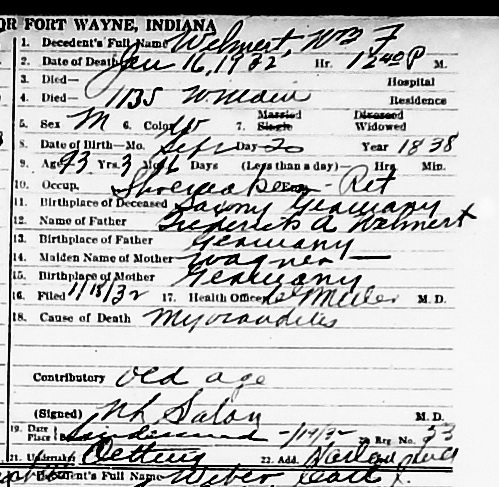 OR FORT WAYNE, INDIANA
1. Decedent's Full Name Welmert, Wm F
2. Date of Death Jan 16, 1932 Hr. 12 40 P M.
3. Died— Hospital
4. Died— 1135 W. Main Residence
5. Sex M 6. Color W 7. Married Single Divorced Widowed
8. Date of Birth—Mo. Sept Day 20 Year 1838
9. Age 93 Yrs. 3 Mo. Days (Less than a day)— Hrs. Min.
10. Occup. Shoemaker - Ret
11. Birthplace of Deceased Saxony Germany
12. Name of Father Frederick A Welmert
13. Birthplace of Father Germany
14. Maiden Name of Mother Wagner —
15. Birthplace of Mother Germany
16. Filed 1/18/32 17. Health Officer M. D.
18. Cause of Death Myocarditis
Contributory old age
(Signed) M. D.
19. Date Place Lindenwood 20. Reg. No. 53
21. Undertaker 22. Add.
Decedent's Full Name Weber, Carl J.